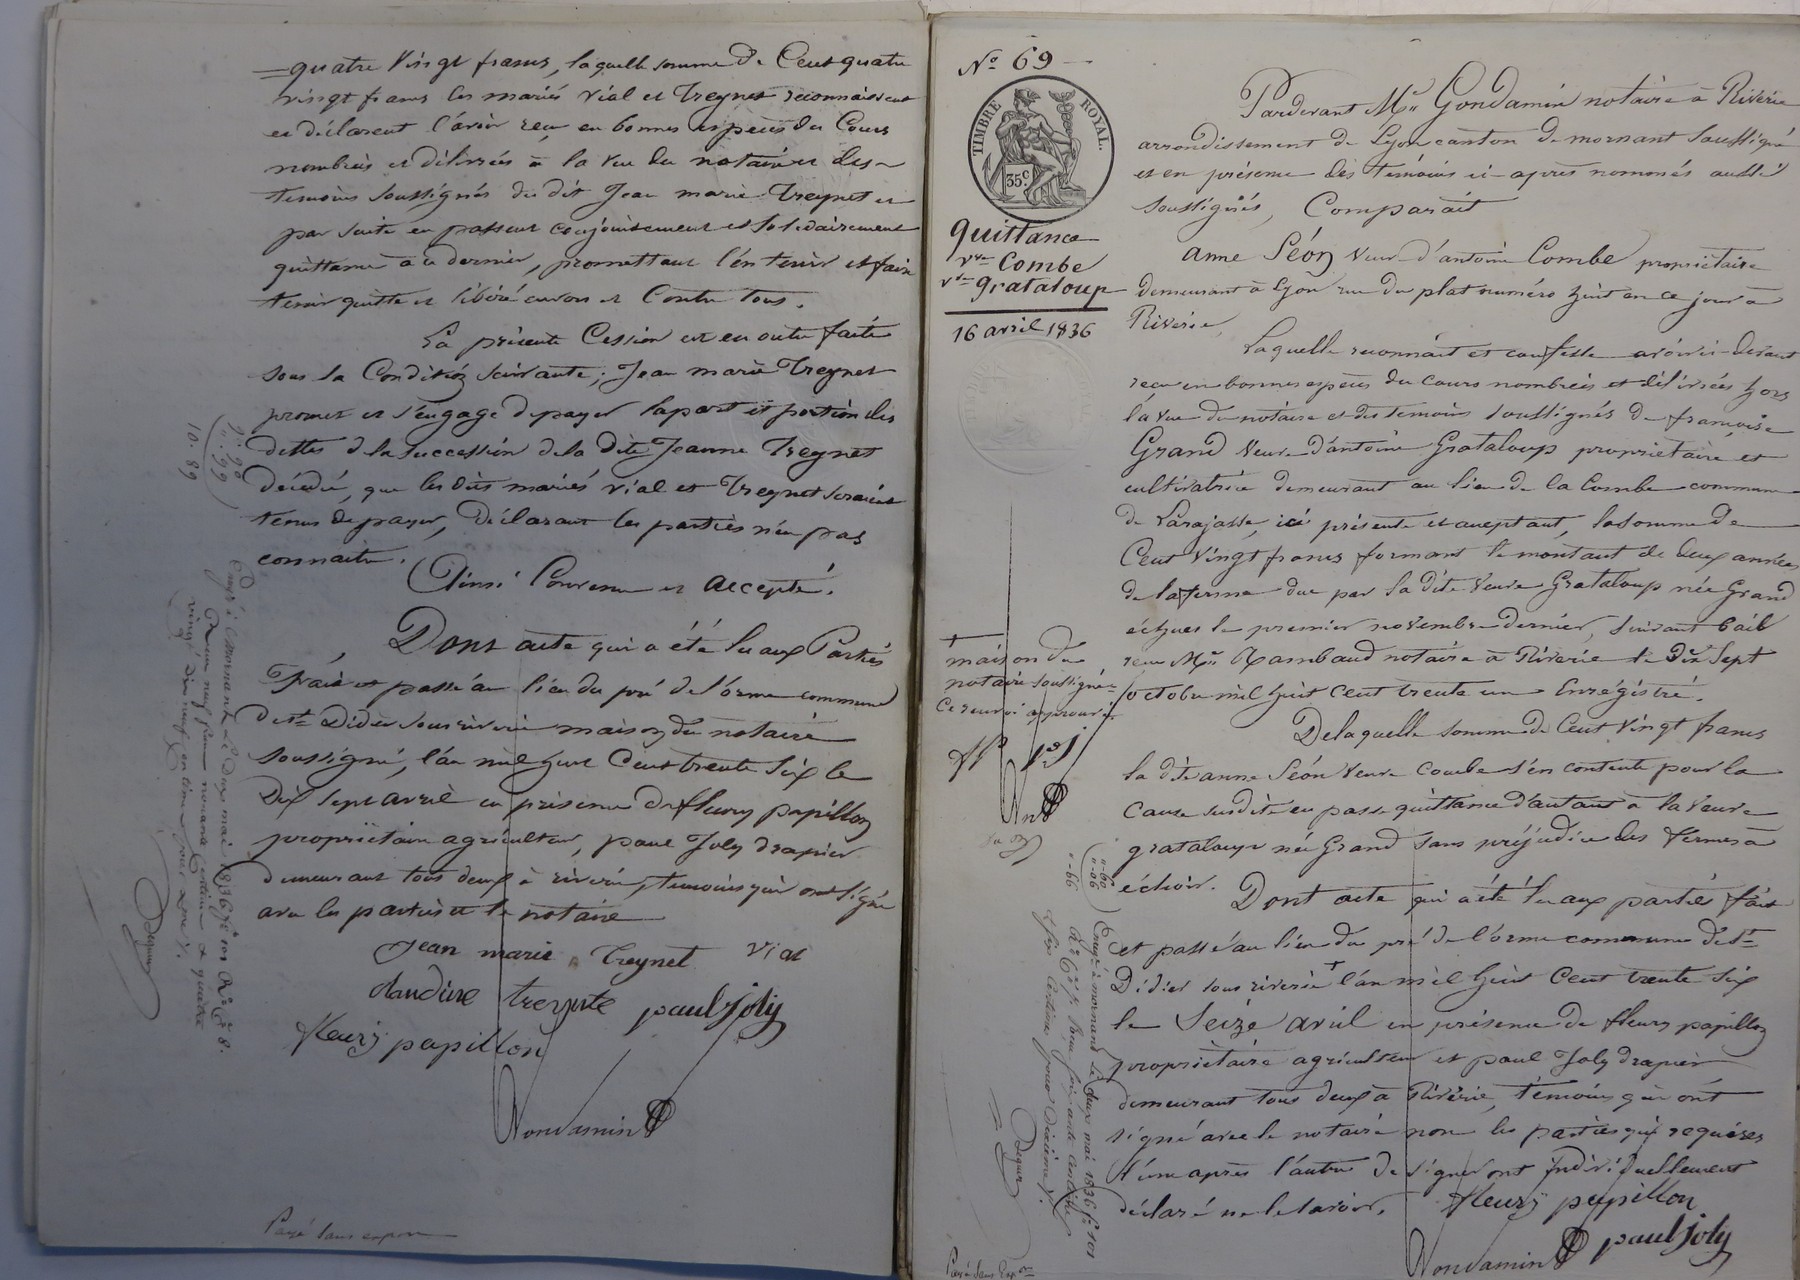 quatre vingt francs, laquelle somme de Cent quatre
vingt francs les mariés Vial et Treynet reconnaissent
et déclarent l'avoir reçu en bonnes espèces du Cours
nombrées et délivrées à la vue du notaire et des
temoins soussignés du dit Jean marie Treynet et
par suite en passent conjointement et solidairement
quittance à ce dernier, promettant l'en tenir et faire
tenir quitte et libéré envers et Contre tous.
La présente Cession est en outre faite
sous la Condition suivante; Jean marie Treynet
promet et s'engage de payer la part et portion des
dettes de la succession de la dite Jeanne Treynet
décédée, que les dits mariés Vial et Treynet seraient
tenus de payer, déclarant les parties n'en pas
connaitre.
Ainsi Convenu et accepté.
Dont acte qui a été lu aux Parties
Fait et passé au lieu du pré de l'orme commune
de St Didier sous riverie maison du notaire
soussigné, l'an mil huit Cent trente six le
Dix sept avril en présence de fleury papillon
propriétaire agriculteur, paul Joly drapier
demeurant tous deux à riverie, temoins qui ont signé
avec les parties et le notaire
Jean marie Treynet Vial
claudine treynete paul Joly
fleury papillon
Gondamin
9. 90
" . 99
10. 89
Enregé à Mornant le deux mai 1836 fo 101 Ro C. 8.
Reçu neuf francs nonante centimes & quatre
vingt dix neuf centimes pour
Deguer
Payé sans expon
No 69
TIMBRE ROYAL.
35c
quittance
vve Combe
vve grataloup
16 avril 1836
Pardevant Me Gondamin notaire à Riverie
arrondissement de Lyon canton de mornant soussigné
et en présence des témoins ci-après nommés aussi
soussignés, Comparait
anne Séon veuve d'antoine Combe propriétaire
demeurant à Lyon rue du plat numéro huit en ce jour à
Riverie,
Laquelle reconnait et confesse avoir ci-devant
reçu en bonnes espèces du cours nombrées et délivrées hors
la vue du notaire et des temoins soussignés de françoise
Grand veuve d'antoine Grataloup propriétaire et
cultivatrice demeurant au lieu de la Combe commune
de Larajasse, ici présente et acceptant, la somme de
Cent vingt francs formant le montant de deux années
de la ferme due par la dite veuve Grataloup née Grand
échues le premier novembre dernier, suivant bail
reçu Me Rambaud notaire à Riverie le Dix Sept
octobre mil huit cent trente un Enregistré.
De laquelle somme de Cent vingt francs
la dite anne Séon veuve Combe s'en contente pour la
cause susdite en passe quittance d'autant à la veuve
grataloup née Grand sans préjudice des fermes à
échoir.
Dont acte qui a été lu aux parties fait
et passé au lieu du pré de l'orme commune de St
Didier sous riverie † l'an mil huit Cent trente six
le Seize avril en présence de fleury papillon
propriétaire agriculteur et paul Joly drapier
demeurant tous deux à Riverie, témoins qui ont
signé avec le notaire non les parties qui requises
l'une après l'autre de signer ont individuellement
déclaré ne le savoir.
fleury papillon
Gondamin paul Joly
†
maison du
notaire soussigné
Ce renvoi approuvé
fp p j
" - 60
" - 06
" - 66
Enregé à mornant le deux mai 1836 fo 101
Ro C. 7. Reçu soixante centimes
& six centimes pour Décime
Deguer
Payé sans Expon